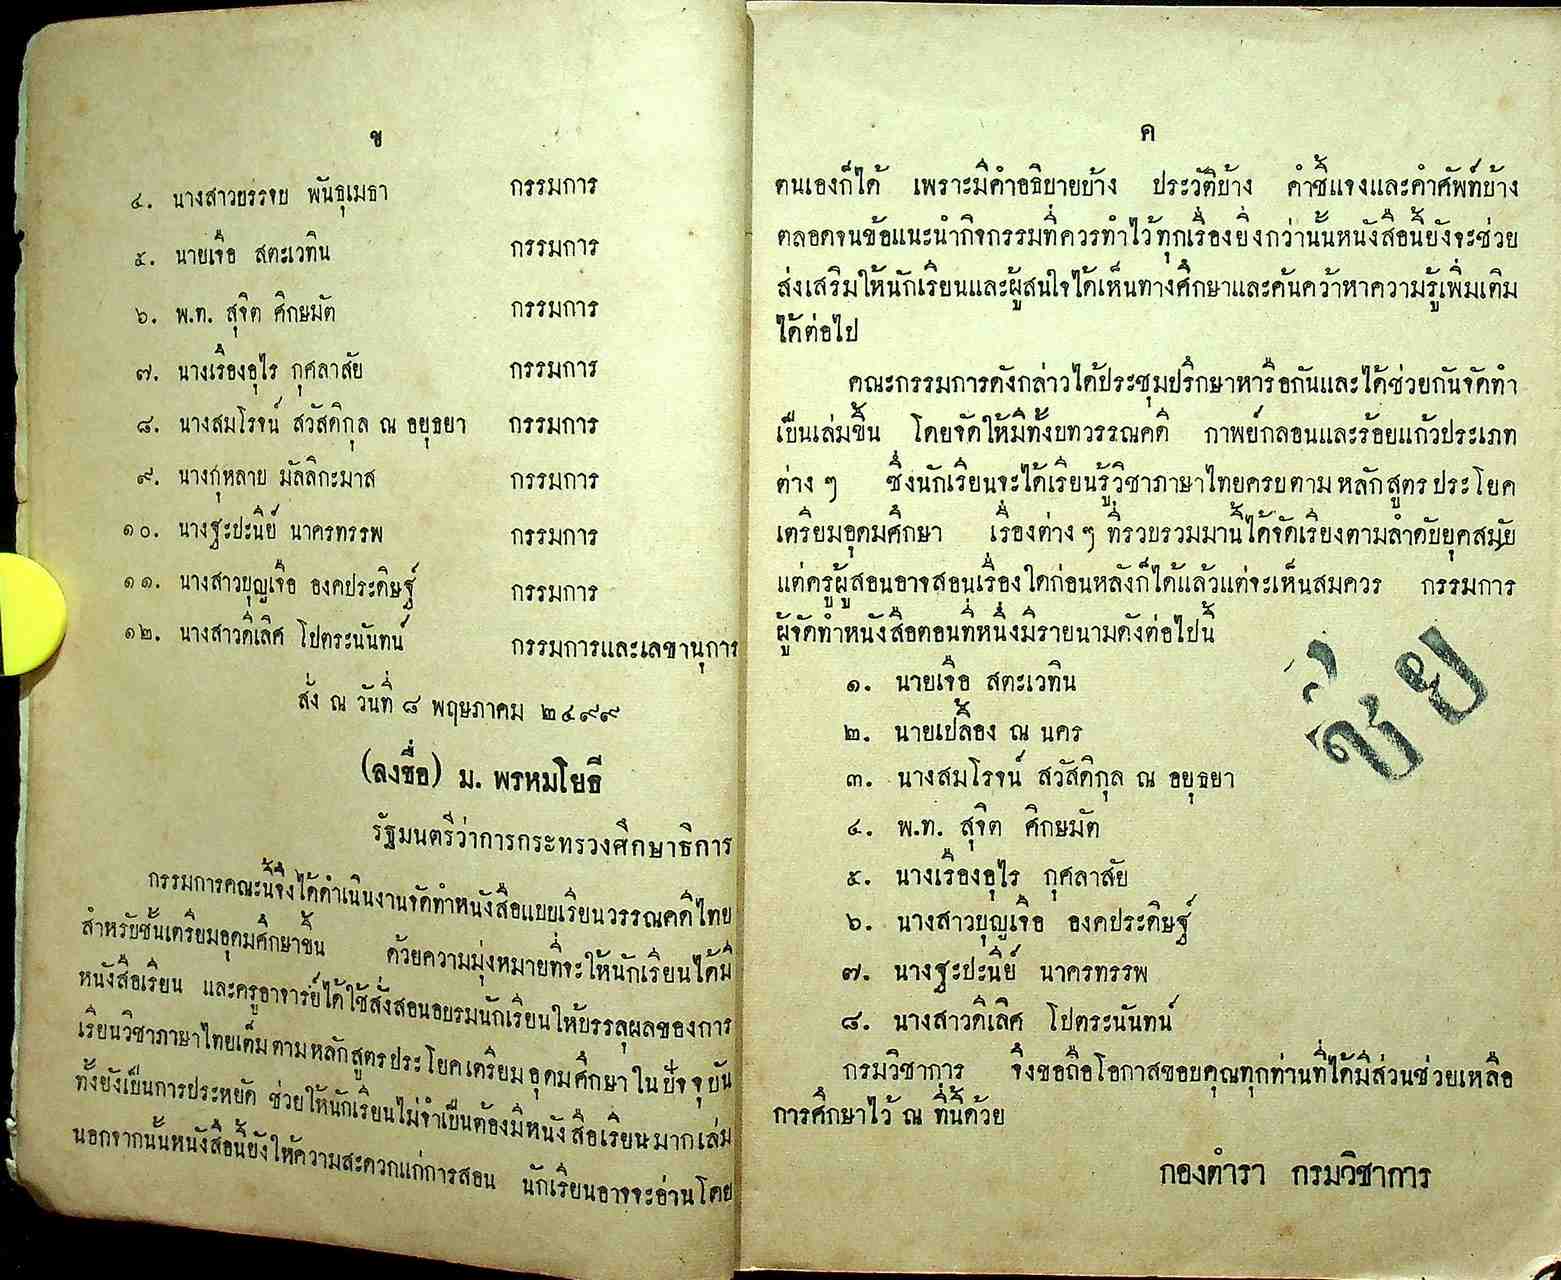 ข
๔. นางสาวบรรจบ พันธุเมธา กรรมการ
๕. นายเจือ สตะเวทิน กรรมการ
๖. พ.ท. สุจิต ศิกษมัต กรรมการ
๗. นางเรืองอุไร กุศลาสัย กรรมการ
๘. นางสมโรจน์ สวัสดิกุล ณ อยุธยา กรรมการ
๙. นางกุหลาบ มัลลิกะมาส กรรมการ
๑๐. นางฐะปะนีย์ นาครทรรพ กรรมการ
๑๑. นางสาวบุญเจือ องคประดิษฐ์ กรรมการ
๑๒. นางสาวดีเลิศ โปตระนันทน์ กรรมการและเลขานุการ
สั่ง ณ วันที่ ๘ พฤษภาคม ๒๔๙๙
(ลงชื่อ) ม. พรหมโยธี
รัฐมนตรีว่าการกระทรวงศึกษาธิการ
กรรมการคณะนี้จึงได้ดำเนินงานจัดทำหนังสือแบบเรียนวรรณคดีไทย
สำหรับชั้นเตรียมอุดมศึกษาขึ้น ด้วยความมุ่งหมายที่จะให้นักเรียนได้มี
หนังสือเรียน และครูอาจารย์ได้ใช้สั่งสอนอบรมนักเรียนให้บรรลุผลของการ
เรียนวิชาภาษาไทยเต็มตามหลักสูตรประโยคเตรียมอุดมศึกษาในปัจจุบัน
ทั้งยังเป็นการประหยัด ช่วยให้นักเรียนไม่จำเป็นต้องมีหนังสือเรียนมากเล่ม
นอกจากนั้นหนังสือนี้ยังให้ความสะดวกแก่การสอน นักเรียนอาจจะอ่านโดย
ค
ตนเองก็ได้ เพราะมีคำอธิบายบ้าง ประวัติบ้าง คำชี้แจงและคำศัพท์บ้าง
ตลอดจนข้อแนะนำกิจกรรมที่ควรทำไว้ทุกเรื่องยิ่งกว่านั้นหนังสือนี้ยังจะช่วย
ส่งเสริมให้นักเรียนและผู้สนใจได้เห็นทางศึกษาและค้นคว้าหาความรู้เพิ่มเติม
ได้ต่อไป
คณะกรรมการดังกล่าวได้ประชุมปรึกษาหารือกันและได้ช่วยกันจัดทำ
เป็นเล่มขึ้น โดยจัดให้มีทั้งบทวรรณคดี กาพย์กลอนและร้อยแก้วประเภท
ต่าง ๆ ซึ่งนักเรียนจะได้เรียนรู้วิชาภาษาไทยครบตามหลักสูตรประโยค
เตรียมอุดมศึกษา เรื่องต่าง ๆ ที่รวบรวมมานี้ได้จัดเรียงตามลำดับยุคสมัย
แต่ครูผู้สอนอาจสอนเรื่องใดก่อนหลังก็ได้แล้วแต่จะเห็นสมควร กรรมการ
ผู้จัดทำหนังสือตอนที่หนึ่งมีรายนามดังต่อไปนี้
๑. นายเจือ สตะเวทิน
๒. นายเปลื้อง ณ นคร
๓. นางสมโรจน์ สวัสดิกุล ณ อยุธยา
๔. พ.ท. สุจิต ศิกษมัต
๕. นางเรืองอุไร กุศลาสัย
๖. นางสาวบุญเจือ องคประดิษฐ์
๗. นางฐะปะนีย์ นาครทรรพ
๘. นางสาวดีเลิศ โปตระนันทน์
กรมวิชาการ จึงขอถือโอกาสขอบคุณทุกท่านที่ได้มีส่วนช่วยเหลือ
การศึกษาไว้ ณ ที่นี้ด้วย
กองตำรา กรมวิชาการ